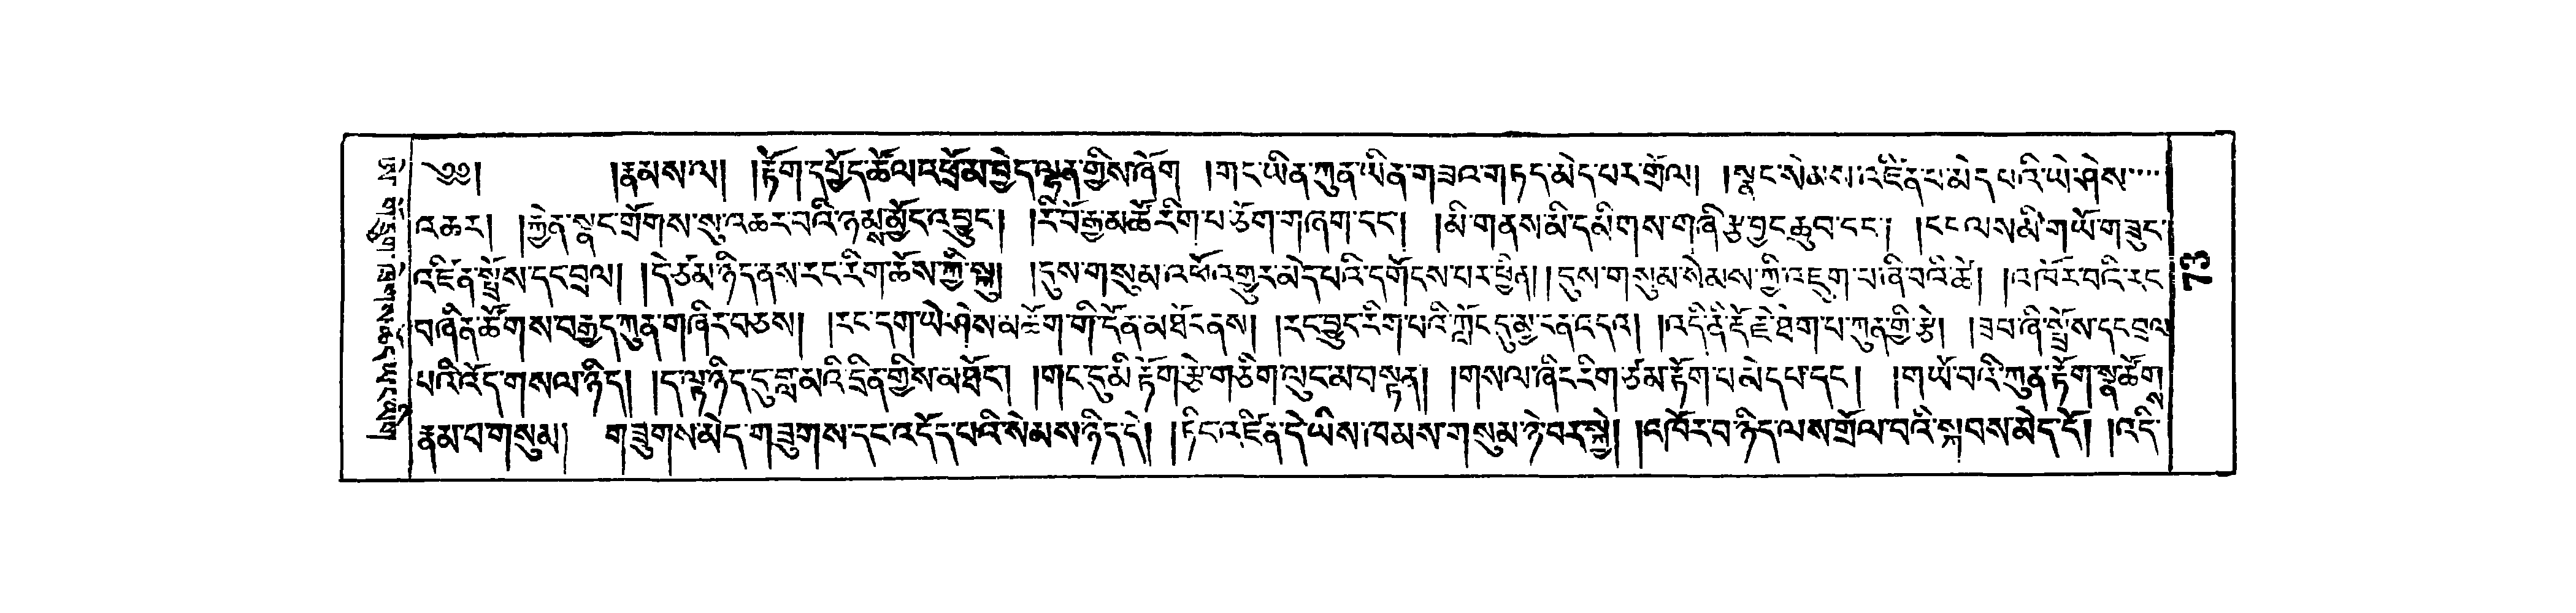 ༄༅། །རྣམས་ལ། །རྟོག་དཔྱོད་ཚོལ་འཕྲོམ་བྱེད་ལྷན་གྱིས་ཞོག །གང་ཡིན་ཀུན་ཡིན་གཟའ་གཏད་མེད་པར་གྲོལ། །སྣང་སེམས་འཛིན་པ་མེད་པའི་ཡེ་ཤེས་
འཆར། །རྐྱེན་སྣང་གྲོགས་སུ་འཆར་བའི་ཉམས་མྱོང་འབྱུང་། །རི་བོ་རྒྱ་མཚོ་རིག་པ་ཅོག་གཞག་དང་། །མི་གནས་མི་དམིགས་གཞི་རྩ་བྱང་ཆུབ་དང་། །ངང་ལས་མི་གཡོ་གཟུང་
འཛིན་སྤྲོས་དང་བྲལ། །དེ་ཙམ་ཉིད་ནས་རང་རིག་ཆོས་ཀྱི་སྐུ། །དུས་གསུམ་འཕོ་འགྱུར་མེད་པའི་དགོངས་པར་ཕྱིན། །དུས་གསུམ་སེམས་ཀྱི་འཇུག་པ་ཞི་བའི་ཚེ། །འཁོར་བའི་རང་
བཞིན་ཚོགས་བརྒྱད་ཀུན་གཞིར་བཅས། །རང་དག་ཡེ་ཤེས་མཆོག་གི་དོན་མཐོང་ནས། །རང་བྱུང་རིག་པའི་ཀློང་དུ་མྱ་ངན་འདའ། །འདི་ནི་རྡོ་རྗེ་ཐེག་པ་ཀུན་གྱི་རྩེ། །ཟབ་ཞི་སྤྲོས་དང་བྲལ་
པའི་འོད་གསལ་ཉིད། །ད་ལྟ་ཉིད་དུ་བླ་མའི་དྲིན་གྱིས་མཐོང་། །གང་དུ་མི་རྟོག་རྩེ་གཅིག་ལུང་མ་བསྟན། །གསལ་ཞིང་རིག་ཙམ་རྟོག་པ་མེད་པ་དང་། །གཡོ་བའི་ཀུན་རྟོག་སྣ་ཚོགས་
རྣམ་པ་གསུམ། གཟུགས་མེད་གཟུགས་དང་འདོད་པའི་སེམས་ཉིད་དེ། །ཏིང་འཛིན་དེ་ཡིས་ཁམས་གསུམ་ཉེ་བར་སྐྱེ། །འཁོར་བ་ཉིད་ལས་གྲོལ་བའི་སྐབས་མེད་དོ། །འདི་